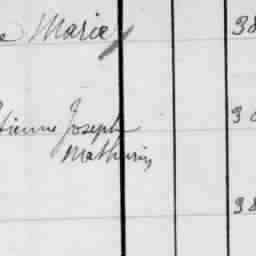 e Marie 38
tienne Joseph 3
Mathurin
38